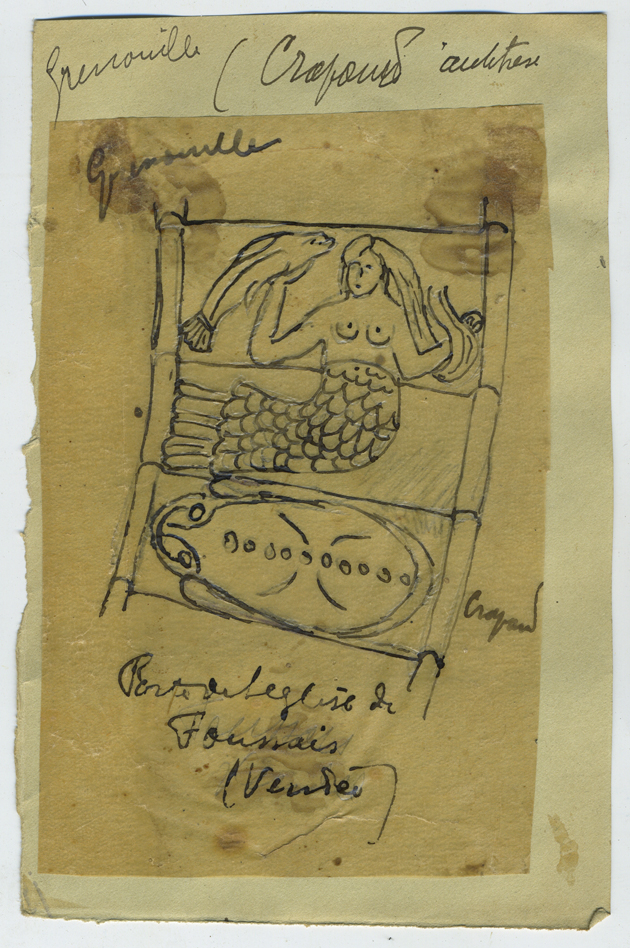 Grenouille (Crapaud
Grenouille
Crapaud
Porte de l'église de
Foussais
(Vendée)